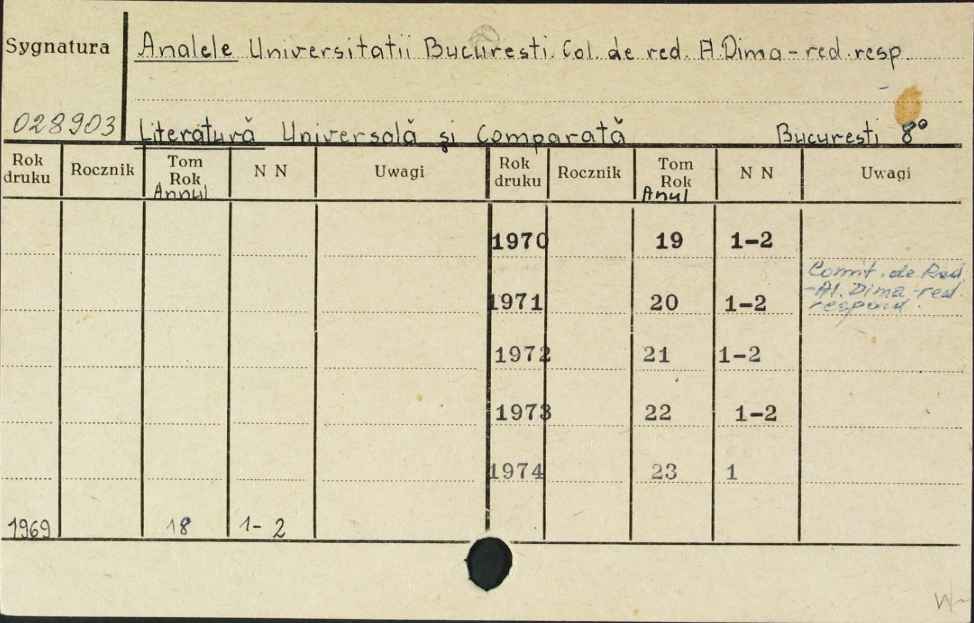 Sygnatura Analele Universitatii Bucuresti. Col. de red. A. Dima - red. resp.
028903 Literatură Universală şi Comparată Bucuresti 8°
Rok druku Rocznik Tom Rok Annul N N Uwagi Rok druku Rocznik Tom Rok Anul N N Uwagi
1970 19 1-2
Comit. de Red.
-Al. Dima-red.
respond.
1971 20 1-2
1972 21 1-2
1973 22 1-2
1974 23 1
1969 18 1-2